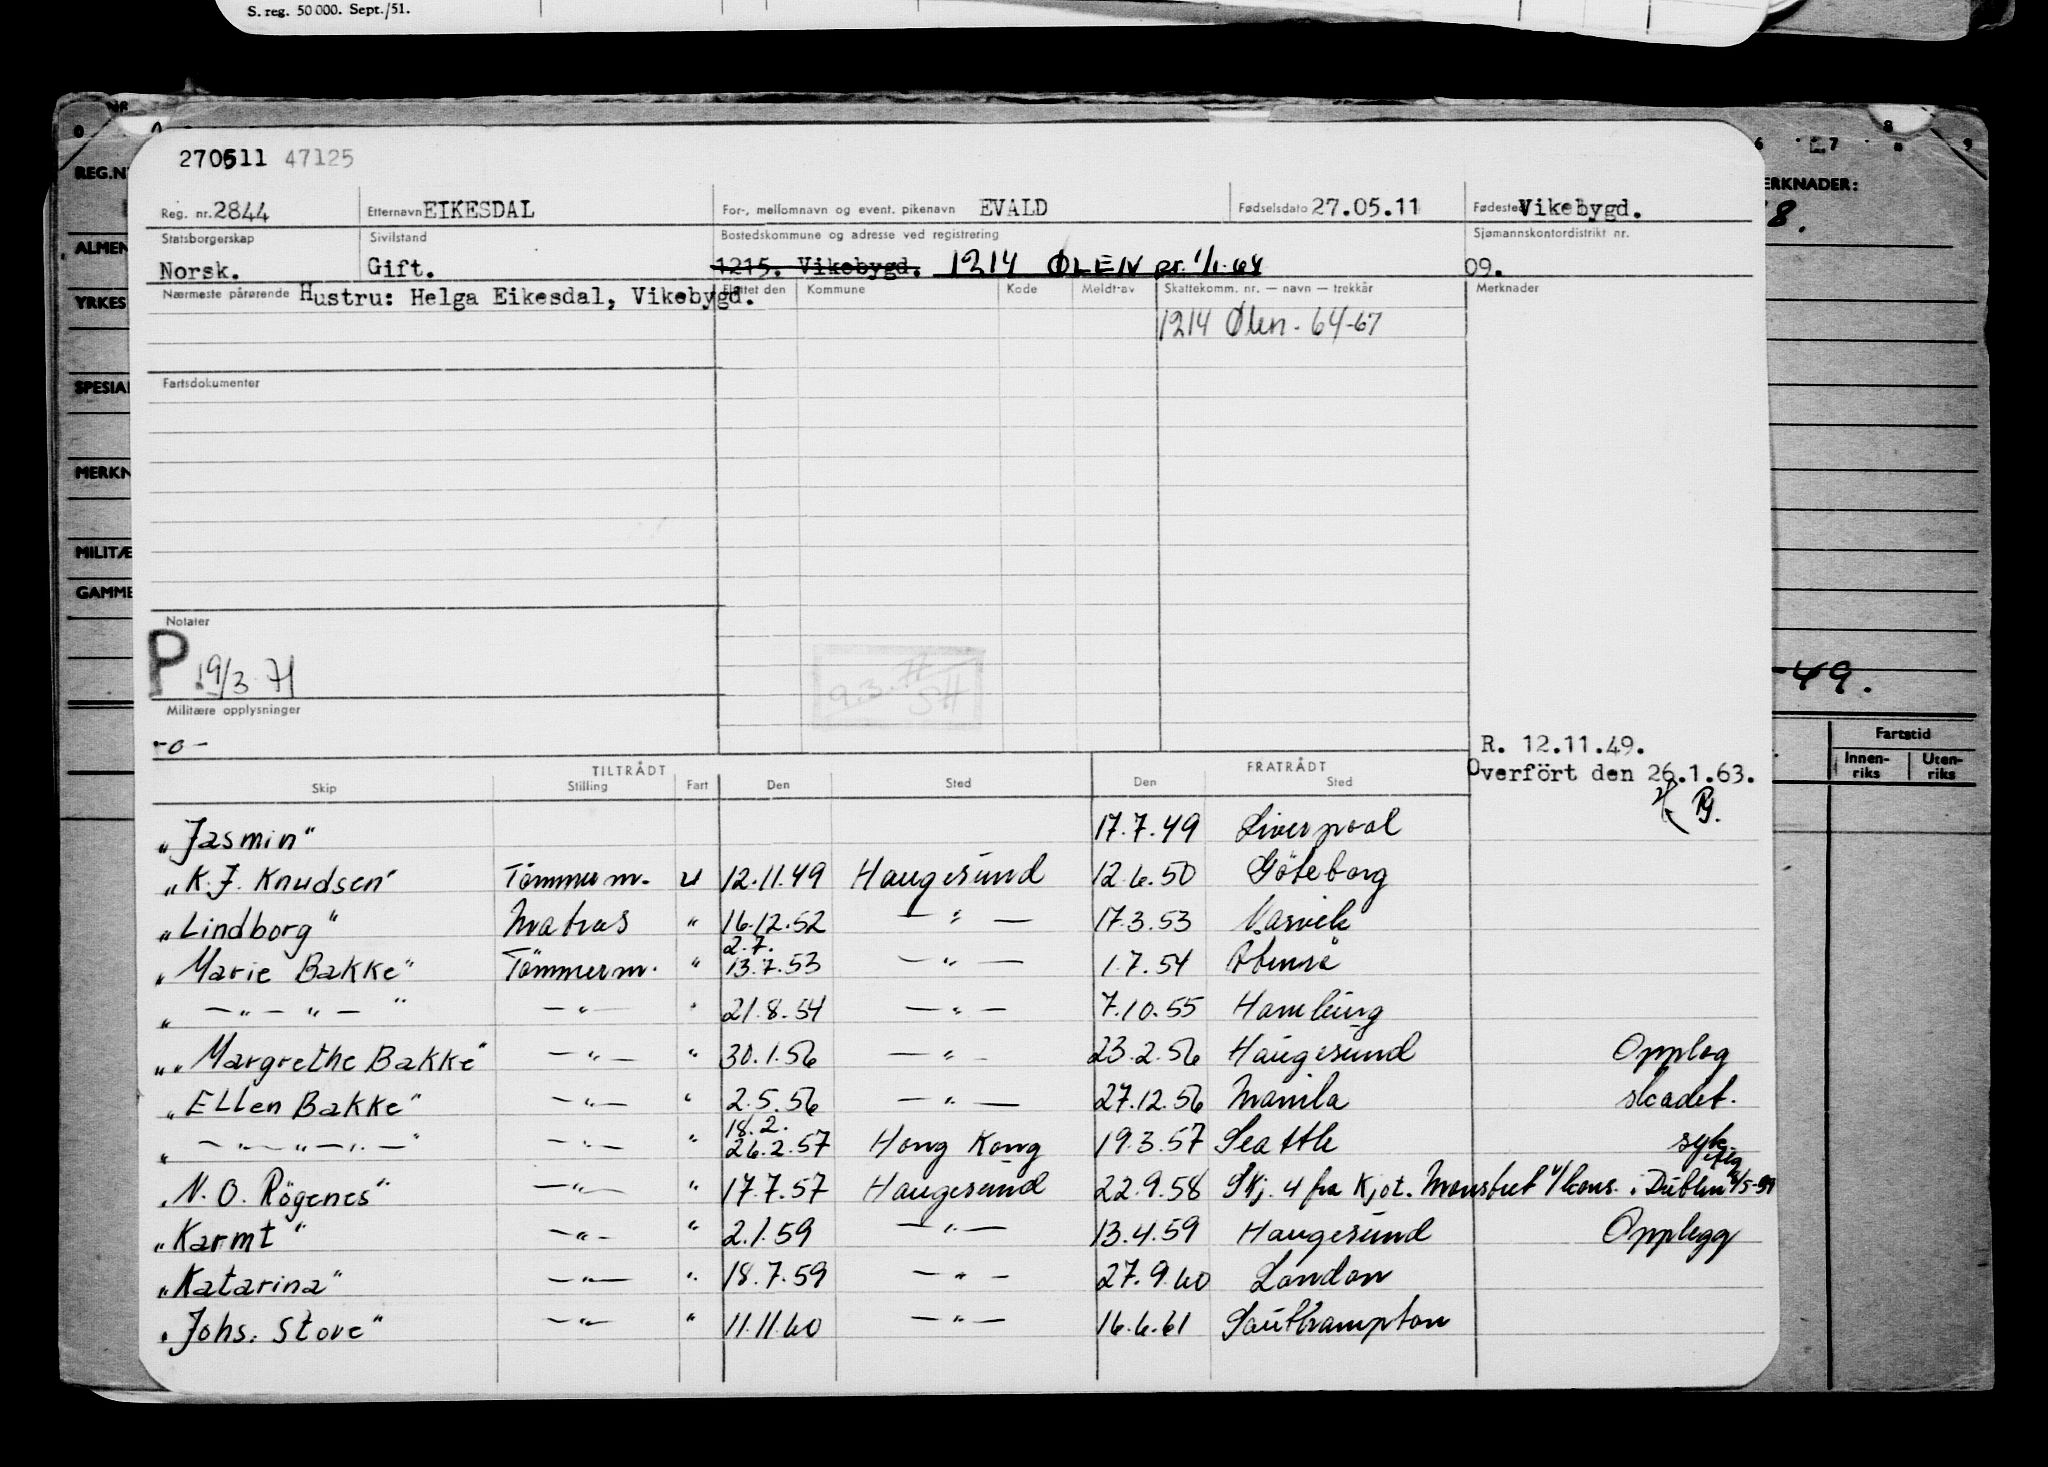 S. reg. 50 000. Sept./51.
REG.N
ERKNADER:
8.
ALMEN
YRKES
SPESIAL
MERKN
MILITÆ
GAMME
-49.
Fartstid
Innen-riks Uten-riks
270511 47125
Reg. nr. 2844 Etternavn EIKESDAL For-, mellomnavn og event. pikenavn EVALD Fødselsdato 27.05.11 Fødested Vikebygd.
Statsborgerskap Sivilstand Bostedskommune og adresse ved registrering Sjømannskontordistrikt nr.
Norsk. Gift. 1215. Vikebygd. 1214 ØLEN pr. 1/1-64 09.
Nærmeste pårørende Hustru: Helga Eikesdal, Vikebygd. Flyttet den Kommune Kode Meldt av Skattekomm. nr. — navn — trekkår Merknader
1214 Ølen - 64-67
Fartsdokumenter
Notater
P 19/3-71
9.3.71
SH
Militære opplysninger
-o-
R. 12.11.49.
Overfört den 26.1.63.
TILTRÅDT FRATRÅDT
Skip Stilling Fart Den Sted Den Sted
"Jasmin" 17.7.49 Liverpool
"K.J. Knudsen" Tömmerm. U 12.11.49 Haugesund 12.6.50 Göteborg
"Lindborg" Matros " 16.12.52 — " — 17.3.53 Narvik
2.7.
"Marie Bakke" Tömmerm. " 13.7.53 — " — 1.7.54 Åbenrå
" — " — " — " — " — " 21.8.54 — " — 7.10.55 Hamburg
"Margrethe Bakke" — " — " 30.1.56 — " — 23.2.56 Haugesund Opplag
"Ellen Bakke" — " — " 2.5.56 — " — 27.12.56 Manila skadet.
18.2.
" — " — " — " — " — " — " 26.2.57 Hong Kong 19.3.57 Seattle syk
"N.O. Rögenes" — " — " 17.7.57 Haugesund 22.9.58 Skj. 4 fra Kjøt. Mönstret v/kons. i Dublin /5-59
"Karmt" — " — " 2.1.59 — " — 13.4.59 Haugesund Opplegg
"Katarina" — " — " 18.7.59 — " — 27.9.60 London
"Johs. Stove" — " — " 11.11.60 — " — 16.6.61 Southampton